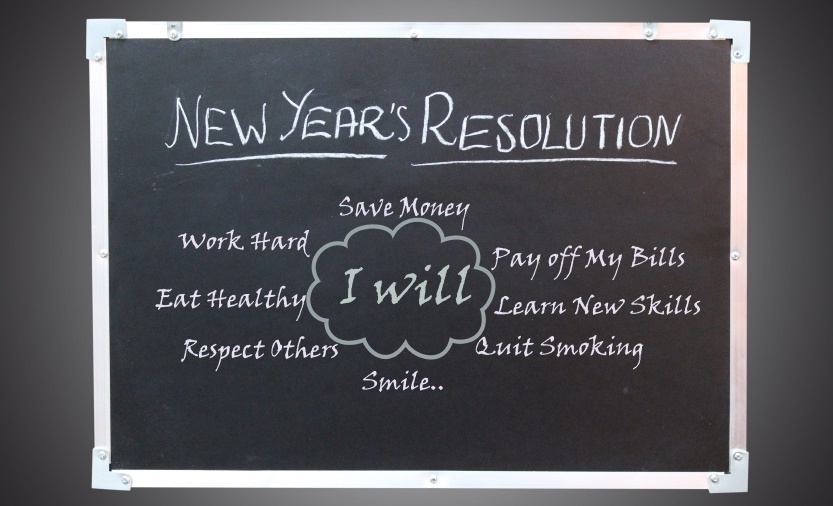 New Year's Resolution
Save Money
Work Hard
Pay off My Bills
I will
Eat Healthy
Learn New Skills
Respect Others
Quit Smoking
Smile..